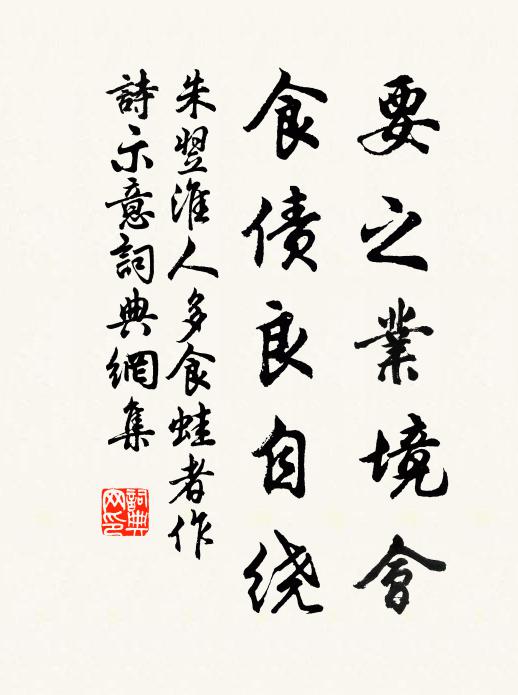 要之業境會
食债良自绕
朱翌淮人多食蛙者作
詩示意詞典網集
詞典網印